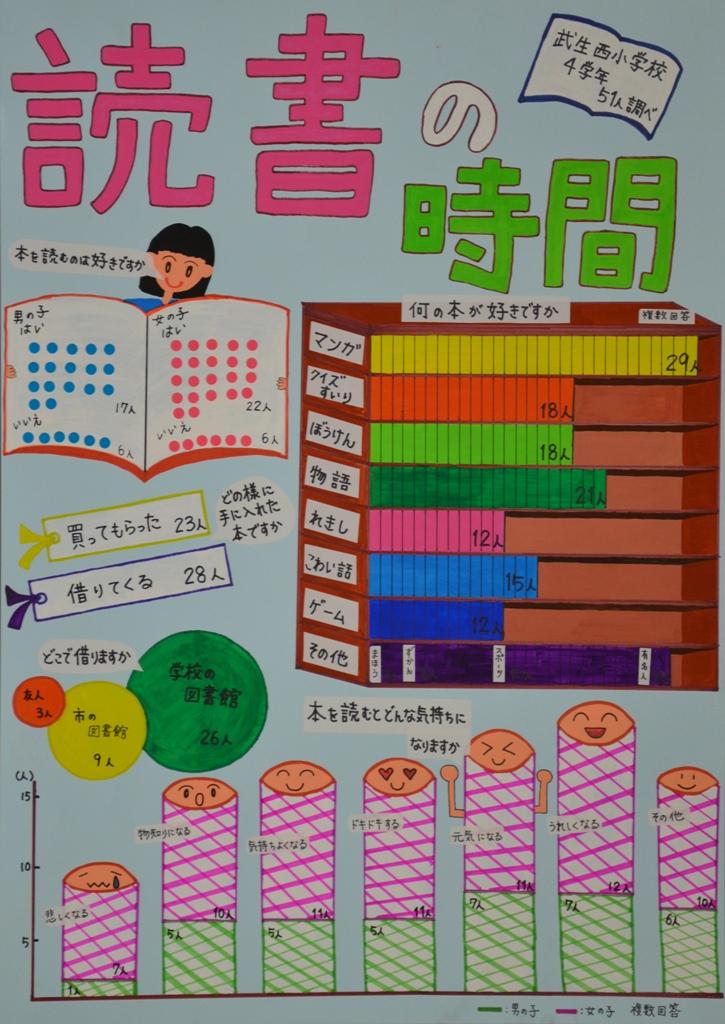 読書の
時間
武生西小学校
4学年
51人調べ
本を読むのは好きですか
男の子
はい
17人
いいえ
6人
女の子
はい
22人
いいえ
6人
何の本が好きですか
複数回答
マンガ
29人
クイズ
すいり
18人
ぼうけん
18人
物語
21人
れきし
12人
こわい話
15人
ゲーム
12人
その他
まほう
ずかん
スポーツ
有名人
どの様に
手に入れた
本ですか
買ってもらった 23人
借りてくる 28人
どこで借りますか
友人
3人
市の
図書館
9人
学校の
図書館
26人
本を読むとどんな気持ちに
なりますか
(人)
15
10
5
悲しくなる
7人
1人
物知りになる
10人
5人
気持ちよくなる
11人
5人
ドキドキする
11人
5人
元気になる
11人
7人
うれしくなる
12人
7人
その他
10人
6人
:男の子 :女の子 複数回答